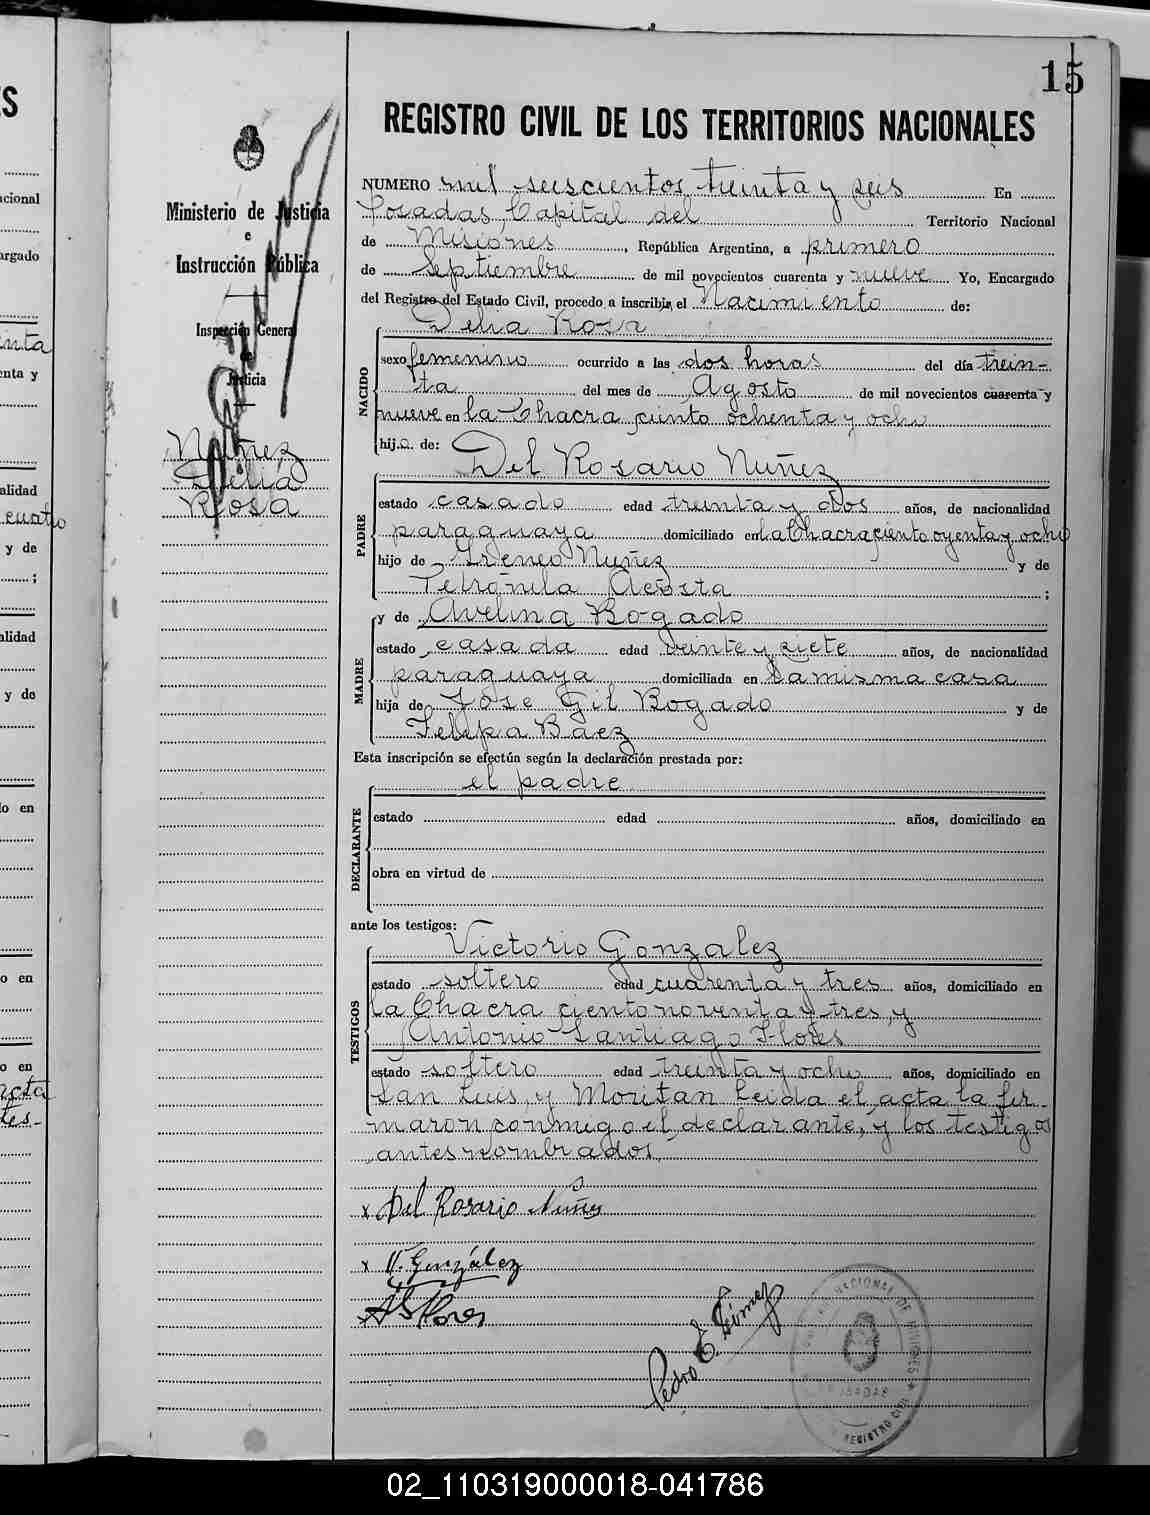 15
REGISTRO CIVIL DE LOS TERRITORIOS NACIONALES
Ministerio de Justicia
e
Instrucción Pública
Inspección General
de
Justicia
Nuñez
Delia
Rosa
NUMERO mil seiscientos treinta y seis En
Posadas, Capital del Territorio Nacional
de Misiones, República Argentina, a primero
de Septiembre de mil novecientos cuarenta y nueve Yo, Encargado
del Registro del Estado Civil, procedo a inscribir el Nacimiento de:
Delia Rosa
NACIDO
sexo femenino ocurrido a las dos horas del día trein-
ta del mes de Agosto de mil novecientos cuarenta y
nueve en la Chacra ciento ochenta y ocho
hija de:
Del Rosario Nuñez
PADRE
estado casado edad treinta y dos años, de nacionalidad
paraguaya domiciliado en la Chacra ciento oyenta y ocho
hijo de Ireneo Nuñez y de
Petronila Acosta;
y de Avelina Bogado
MADRE
estado casada edad veinte y siete años, de nacionalidad
paraguaya domiciliada en la misma casa
hija de José Gil Bogado y de
Felipa Baez
Esta inscripción se efectúa según la declaración prestada por:
el padre
DECLARANTE
estado edad años, domiciliado en
obra en virtud de
ante los testigos:
Victorio Gonzalez
TESTIGOS
estado soltero edad cuarenta y tres años, domiciliado en
la Chacra ciento noventa y tres, y
Antonio Santiago Flores
estado soltero edad treinta y ocho años, domiciliado en
San Luis, y Moritan Leida el acta la fir-
maron conmigo el declarante, y los testigos
antes nombrados
x Del Rosario Nuñez
x V. González
A S Flores
Pedro E. Gómez
REGISTRO CIVIL
POSADAS
02_110319000018-041786